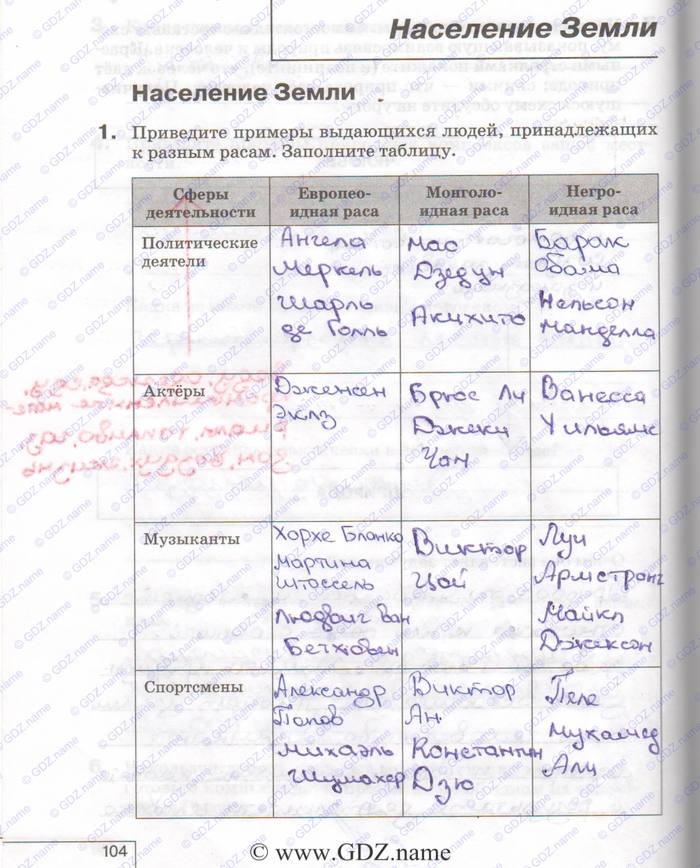 Население Земли
Население Земли
1. Приведите примеры выдающихся людей, принадлежащих
к разным расам. Заполните таблицу.
Сферы
деятельности
Европео-
идная раса
Монголо-
идная раса
Негро-
идная раса
Политические
деятели
Ангела
Меркель
Шарль
де Голль
Мао
Дзедун
Акихито
Барак
Обама
Нельсон
Манделла
Актёры
Дженсен
Эклз
Брюс Ли
Джеки
Чан
Ванесса
Уильямс
Музыканты
Хорхе Бланко
Мартина
Штоссель
Людвиг Ван
Бетховен
Виктор
Цой
Луи
Армстронг
Майкл
Джексон
Спортсмены
Александр
Попов
Михаэль
Шумахер
Виктор
Ан
Константин
Дзю
Пеле
Мухамед
Али
104
© www.GDZ.name